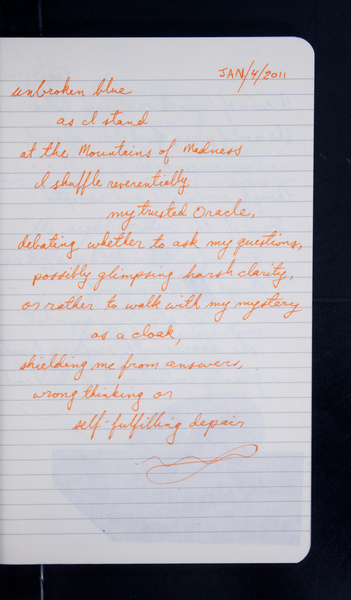 JAN/4/2011
unbroken blue
as I stand
at the Mountains of Madness
I shuffle reverentially
my trusted Oracle,
debating whether to ask my questions,
possibly glimpsing harsh clarity,
or rather to walk with my mystery
as a cloak,
shielding me from answers,
wrong thinking or
self-fulfilling depair